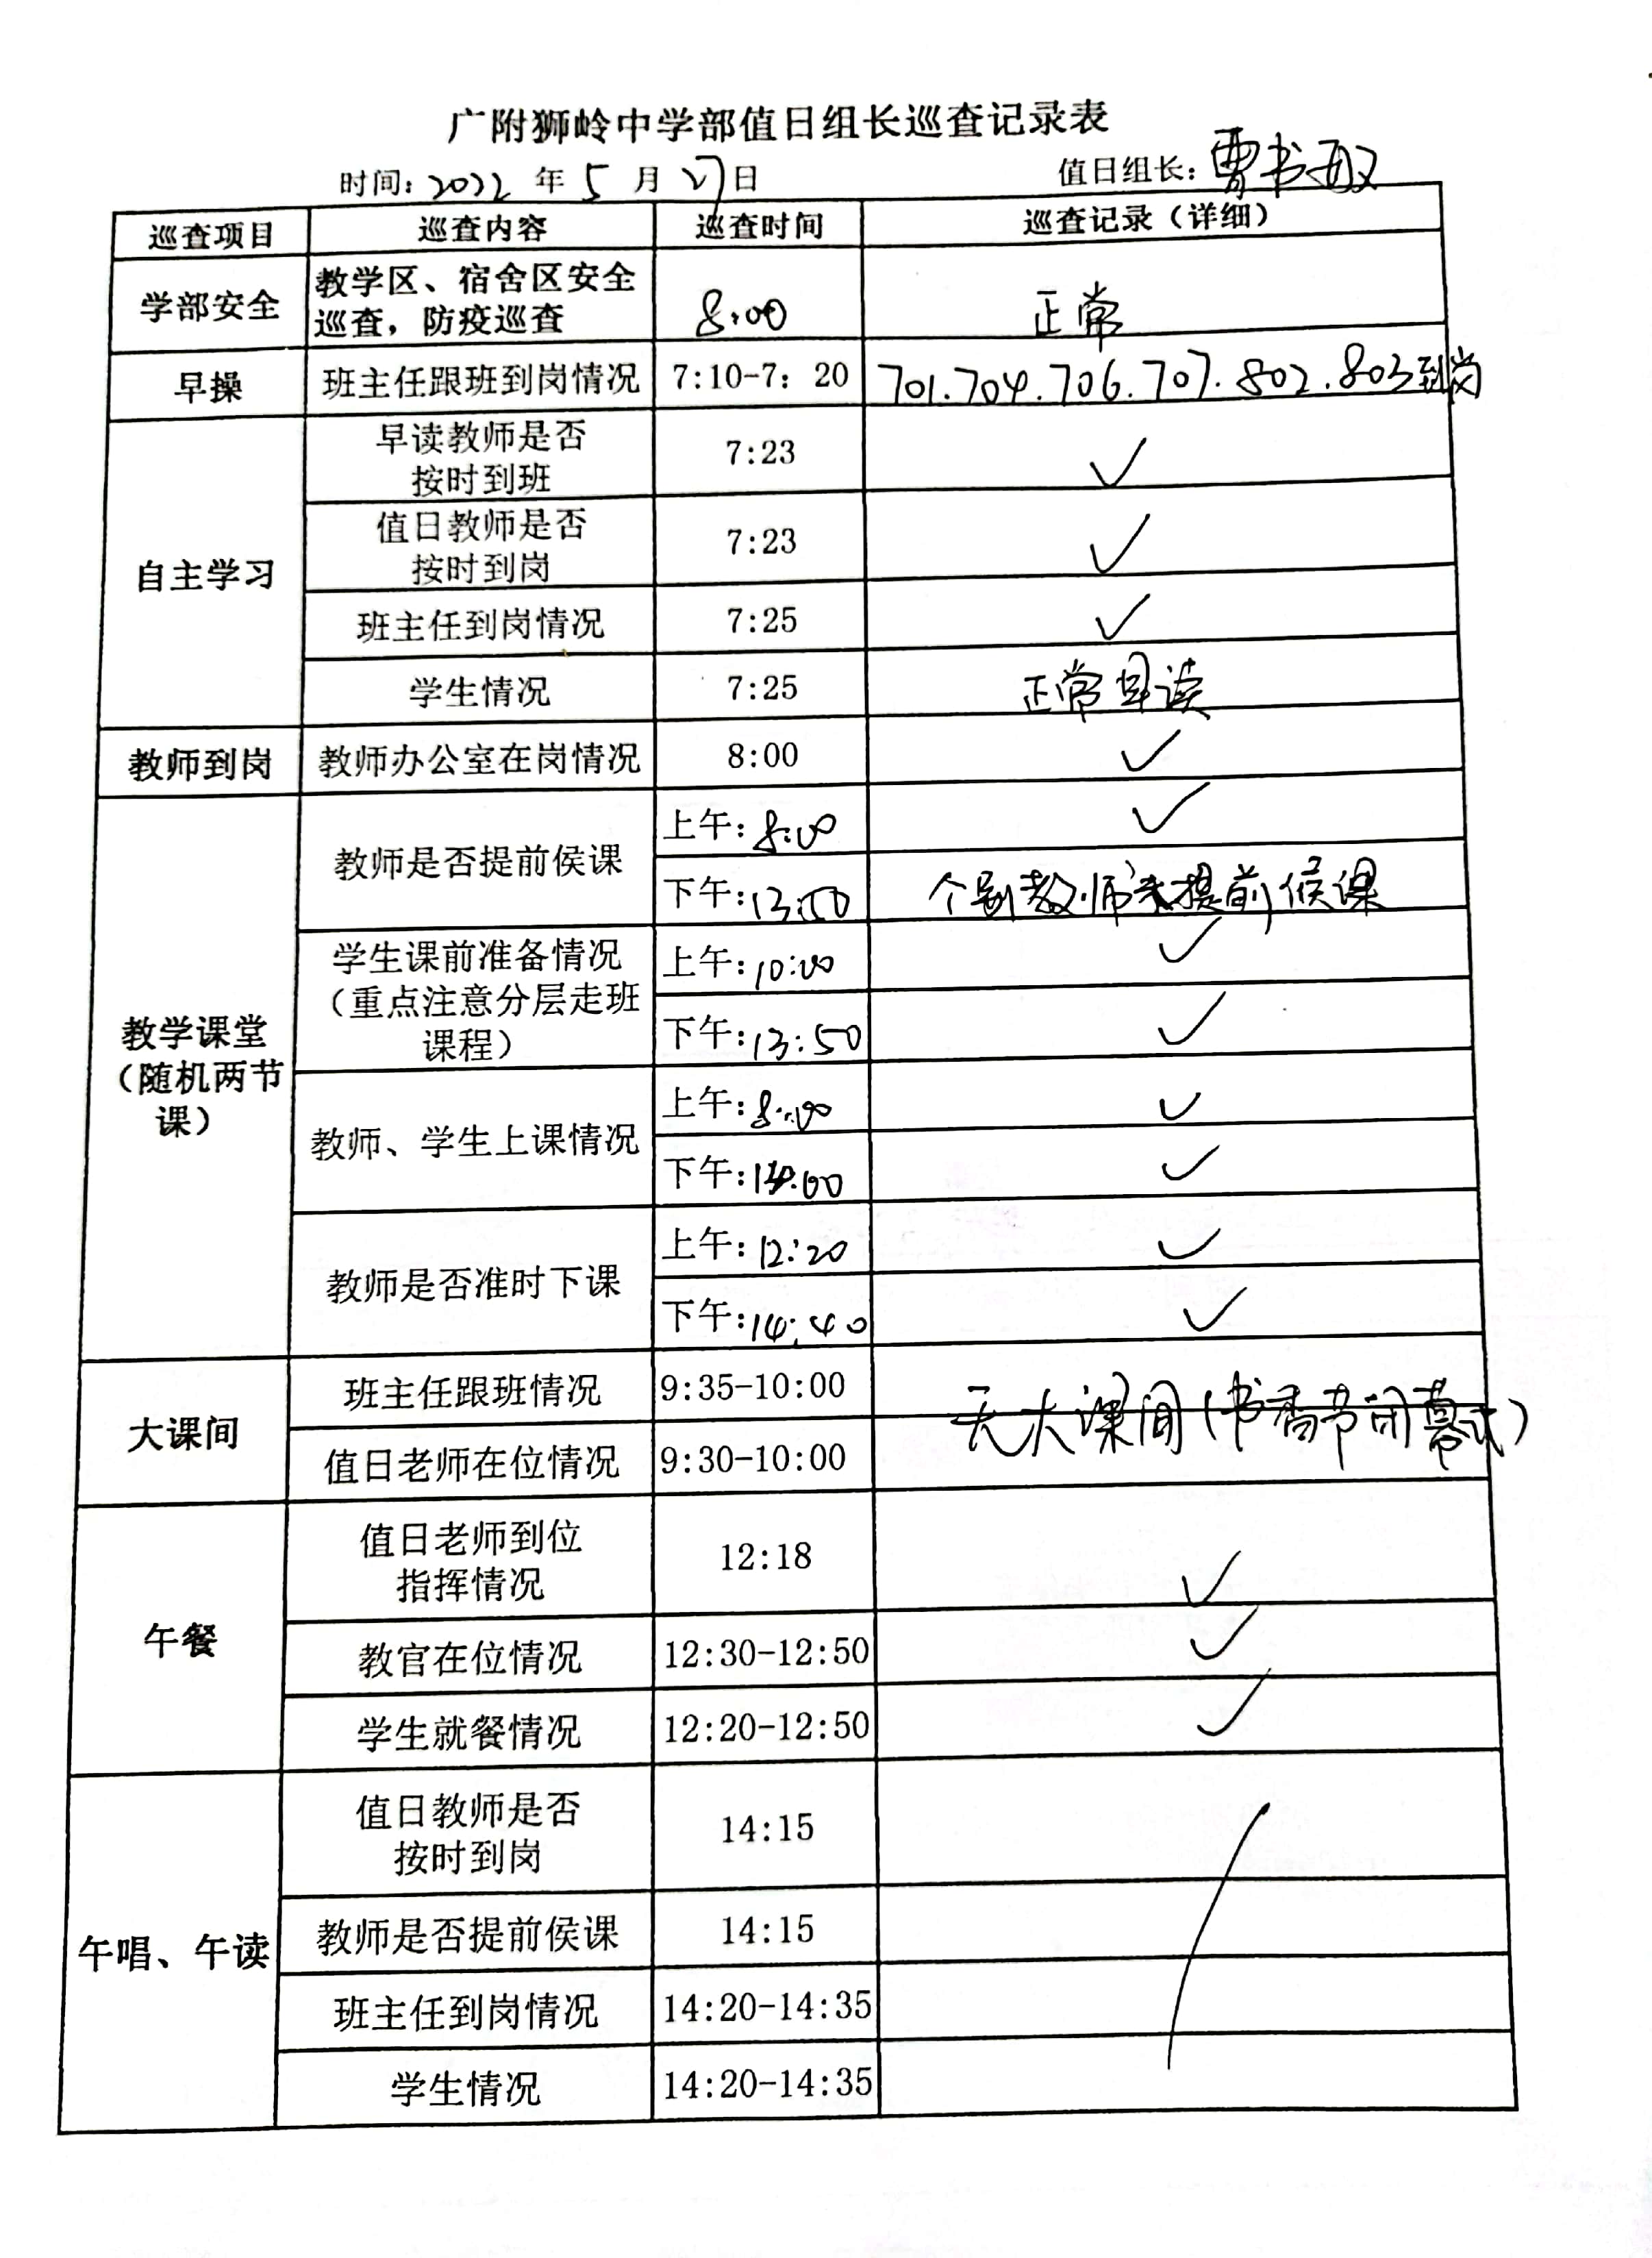 广附狮岭中学部值日组长巡查记录表
时间: 2022 年 5 月 27 日 值日组长: 曹书敏
巡查项目 巡查内容 巡查时间 巡查记录（详细）
学部安全 教学区、宿舍区安全 8:00 正常
巡查，防疫巡查
早操 班主任跟班到岗情况 7:10-7：20 701.704.706.707.802.803到岗
自主学习 早读教师是否 7:23 ✓
按时到班
值日教师是否 7:23 ✓
按时到岗
班主任到岗情况 7:25 ✓
学生情况 7:25 正常早读
教师到岗 教师办公室在岗情况 8:00 ✓
教学课堂
（随机两节
课）
教师是否提前侯课 上午: 8:00 ✓
下午: 13:50 个别教师未提前候课
学生课前准备情况 上午: 10:00 ✓
（重点注意分层走班
课程） 下午: 13:50 ✓
教师、学生上课情况 上午: 8:00 ✓
下午: 14:00 ✓
教师是否准时下课 上午: 12:20 ✓
下午: 14:40 ✓
大课间 班主任跟班情况 9:35-10:00 无大课间(书香节闭幕式)
值日老师在位情况 9:30-10:00
午餐 值日老师到位 12:18 ✓
指挥情况
教官在位情况 12:30-12:50 ✓
学生就餐情况 12:20-12:50 ✓
午唱、午读 值日教师是否 14:15
按时到岗
教师是否提前侯课 14:15
班主任到岗情况 14:20-14:35
学生情况 14:20-14:35